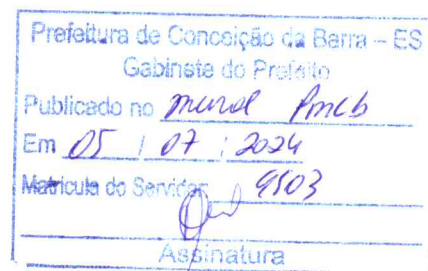 Prefeitura de Conceição da Barra – ES
Gabinete do Prefeito
Publicado no mural Pmcb
Em 05 / 07 / 2024
Matricula do Servidor 9503
Assinatura